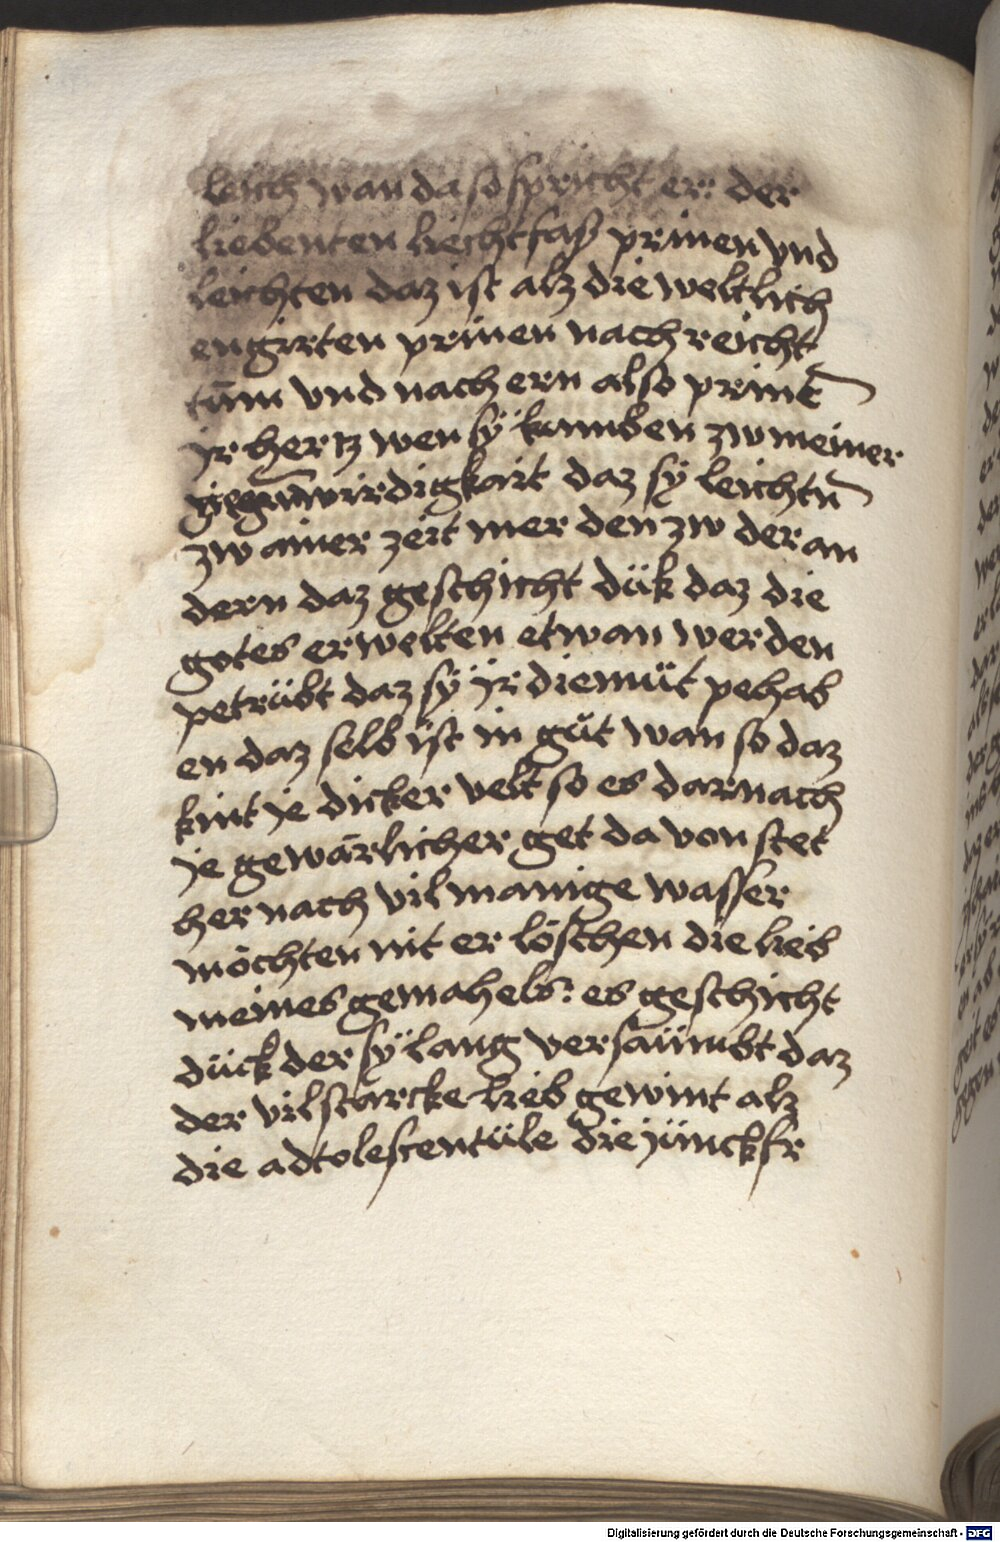 leich wan da so spricht er: der
liebenten liechtfasz prinen vnd
leichten daz ist alz die weltlich
en girten prinen nach reicht
tūm vnd nach ern also prinē
jr hertz wen sÿ kumben zw meiner
gegēwirdigkait daz sy leichtn̄
zw ainer zeit mer den zw der an
dern daz geschicht dük daz die
gotes erwelten etwan werden
petrübt daz sÿ jr diemüt pehab
en daz selb ist in güt wan so daz
kint je dicker velt so es darnach
je gewärlicher get da von stet
her nach vil manige wasser
möchten nit er löschen die lieb
meines gemahels: es geschicht
dück der sÿ lang versäümbt daz
der vil starcke lieb gewint alz
die adtolescentüle die jünckfr
Digitalisierung gefördert durch die Deutsche Forschungsgemeinschaft - DFG